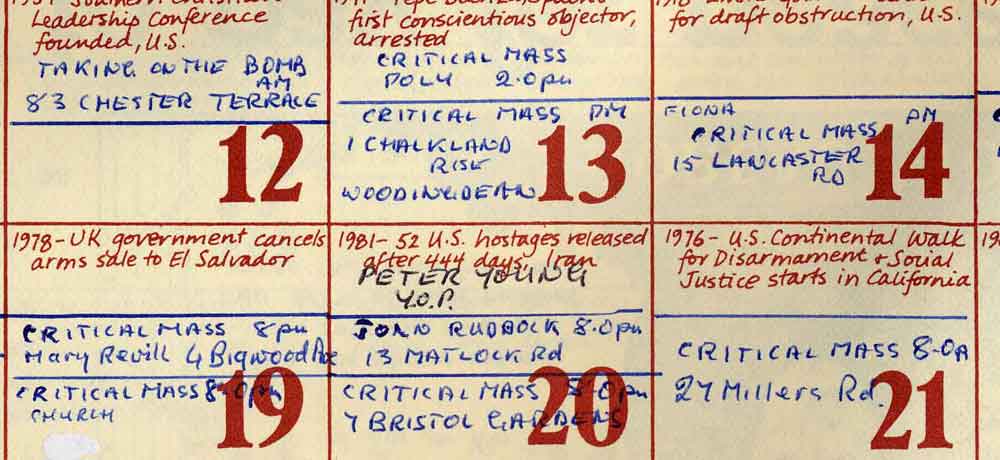 Leadership Conference
founded, U.S.
TAKING ON THE BOMB
AM
83 CHESTER TERRACE
12
first conscientious objector,
arrested
CRITICAL MASS
POLY 2.0pm
CRITICAL MASS PM
1 CHALKLAND
RISE
WOODINGDEAN
13
for draft obstruction, U.S.
FIONA PM
CRITICAL MASS
15 LANCASTER
RD
14
1978 - UK government cancels
arms sale to El Salvador
CRITICAL MASS 8pm
Mary Revill 4 Bigwood Ave
CRITICAL MASS 8-0pm
CHURCH
19
1981 - 52 U.S. hostages released
after 444 days, Iran
PETER YOUNG
Y.O.P.
JOHN RUDDOCK 8.0pm
13 MATLOCK Rd
CRITICAL MASS 8-0pm
7 BRISTOL GARDENS
20
1976 - U.S. Continental Walk
for Disarmament + Social
Justice starts in California
CRITICAL MASS 8-0
27 Millers Rd.
21